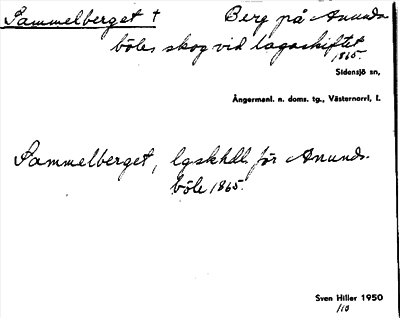 Sammelberget † Berg på Anunds-
böles skog vid lagaskiftet
1865.
Sidensjö sn,
Ångermanl. n. doms. tg., Västernorrl, l.
Sammelberget, lgskhdl. för Anunds-
böle 1865.
Sven Hiller 1950
/10